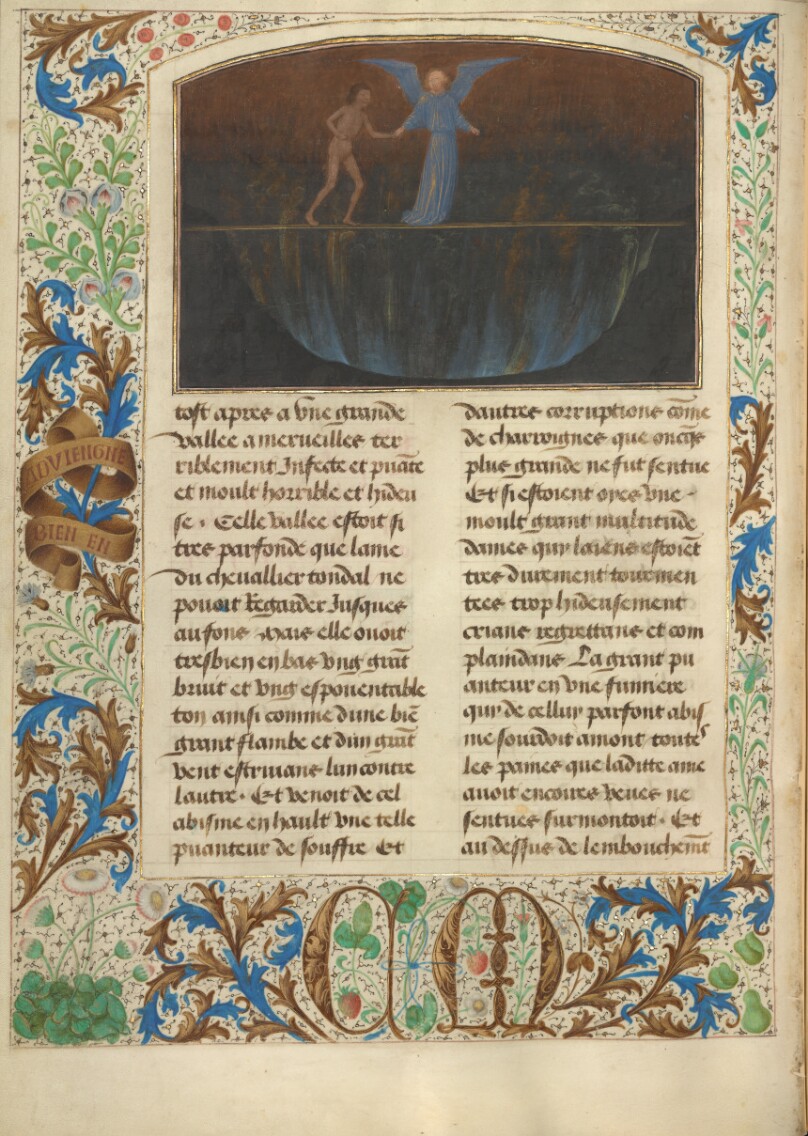 ADVIENGNE
BIEN EN
tost apres a vne grande
vallee a merueilles ter
riblement Infecte et puāte
et moult horrible et hideu
se . Celle vallee estoit si
tres parfonde que lame
du cheuallier tondal ne
pouoit Regarder Jusques
au fons Mais elle ouoit
tresbien en bas vng grāt
bruit et vng espouentable
ton ainsi comme dune biē
grant flambe et dun grāt
vent estriuans lun contre
lautre . Et venoit de cel
abisme en hault vne telle
puanteur de souffre Et
dautres corruptions cōme
de charoignes que oncqs
plus grande ne fut sentue
Et si estoient oyes vne
moult grant multitude
dames qui laiens estoiēt
tres durement tourmen
tees trop hideusement
crians regrettans et com
plaindans La grant pu
anteur en vne fumiere
qui de cellui parfont abis
me sourdoit amont toutes
les pames que laditte ame
auoit encores veues ne
sentues surmontoit . Et
au dessus de lembouchemt̄
C M